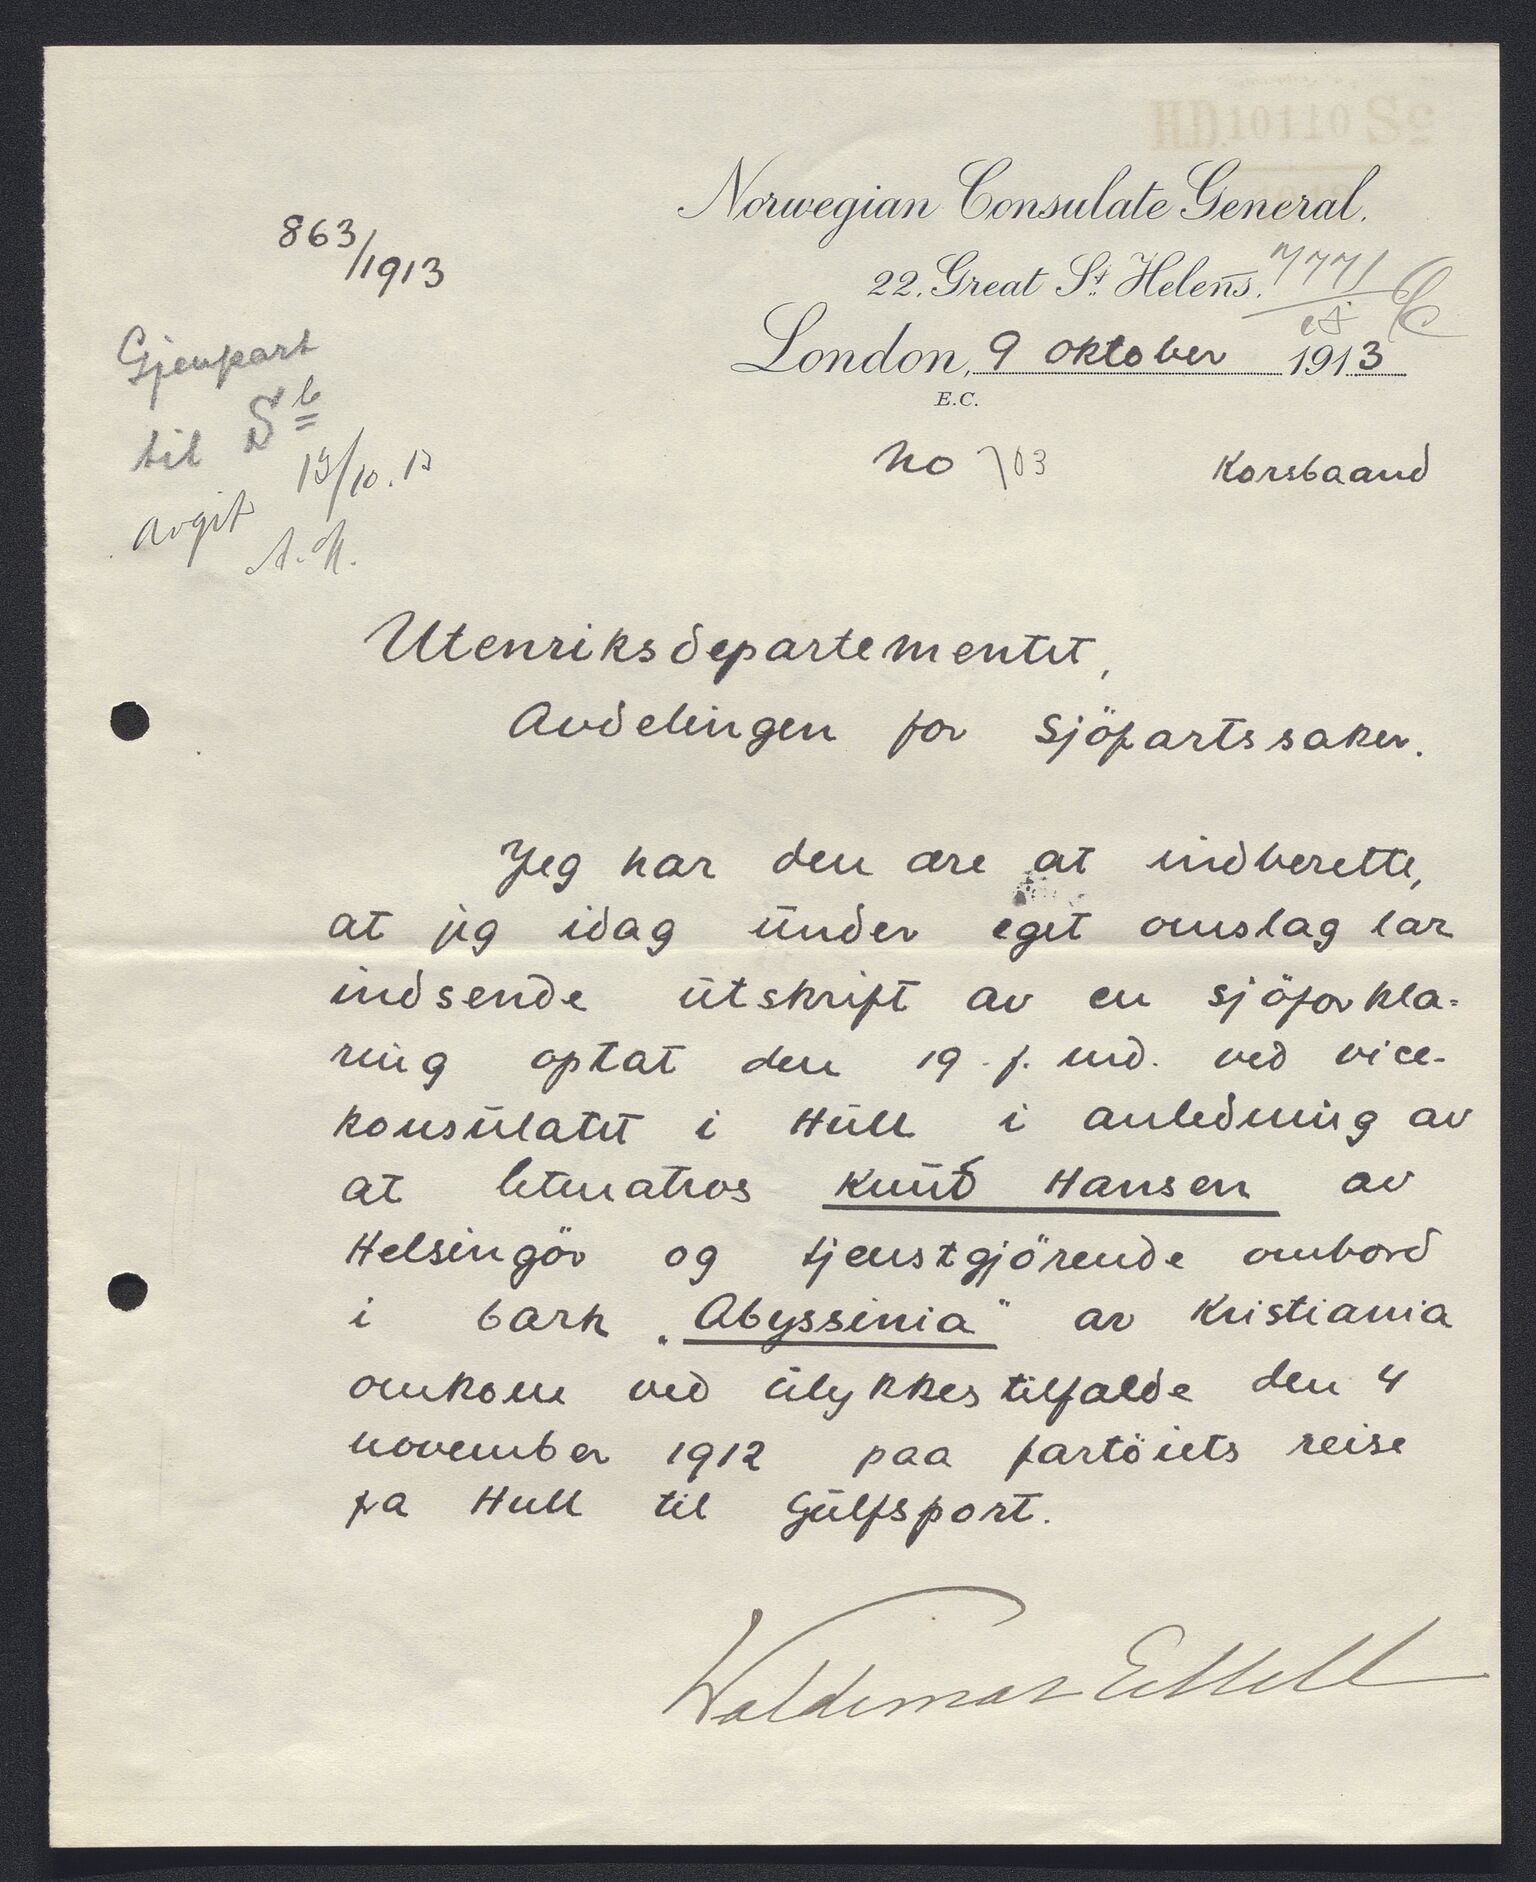 Norwegian Consulate General.
22, Great St. Helens.
London, 9 oktober 1913
E.C.
863/1913
Gjenpart
til Sb
13/10.13
avgit
A.M.
No 703 Korsbaand
Utenriksdepartementet,
Avdelingen for sjöfartssaker.
Jeg har den ære at indberette,
at jeg idag under eget omslag lar
indsende utskrift av en sjöforkla-
ring optat den 19 f. md. ved vice-
konsulatet i Hull i anledning av
at letmatros Knud Hansen av
Helsingör og tjenstgjörende ombord
i bark "Abyssinia" av Kristiania
omkom ved ulykkestilfælde den 4
november 1912 paa fartöiets reise
fra Hull til Gulfsport.
Waldemar